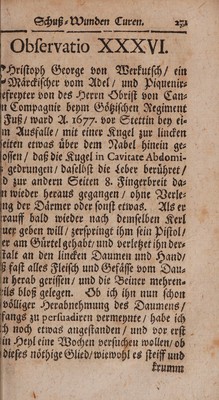 Schuß-Wunden Curen. 271
Observatio XXXVI.
Christoph George von Werkutsch/ ein
Märckischer vom Adel/ und Piquenir-
efreyter von des Herrn Obrist von Can-
n Compagnie beym Götzischen Regiment
Fuß/ ward A. 1677. vor Stettin bey ei-
m Ausfalle/ mit einer Kugel zur lincken
eiten etwas über dem Nabel hinein ge-
ossen/ daß die Kugel in Cavitate Abdomi-
gedrungen/ daselbst die Leber berühret/
d zur andern Seiten 8. Fingerbreit da-
n wieder heraus gegangen/ ohne Verle-
ng der Därmer oder sonst etwas. Als er
rauff bald wieder nach demselben Kerl
uer geben will/ zerspringt ihm sein Pistol/
er am Gürtel gehabt/ und verletzet ihn der-
talt an den lincken Daumen und Hand/
ß fast alles Fleisch und Gefässe vom Dau-
n herab gerissen/ und die Beiner mehren-
ils bloß gelegen. Ob ich ihn nun schon
völliger Herabnehmung des Daumens/
fangs zu persuadiren vermeynte/ habe ich
ch noch etwas angestanden/ und vor erst
in Heyl eine Wochen versuchen wollen/ ob
dieses nöthige Glied/ wiewohl es steiff und
krumm